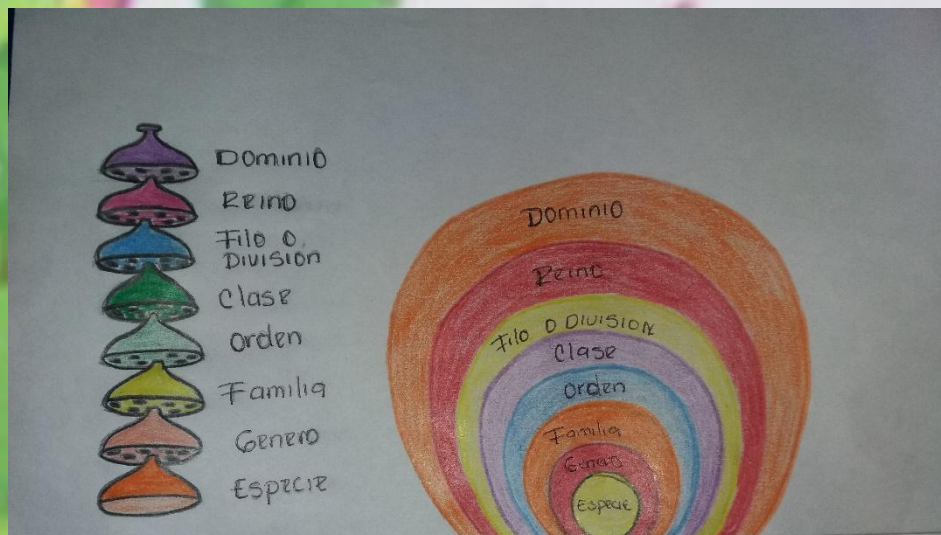 Dominio
Reino
Filo o
Division
Clase
Orden
Familia
Genero
Especie
Dominio
Reino
Filo o Division
Clase
Orden
Familia
Genero
Especie